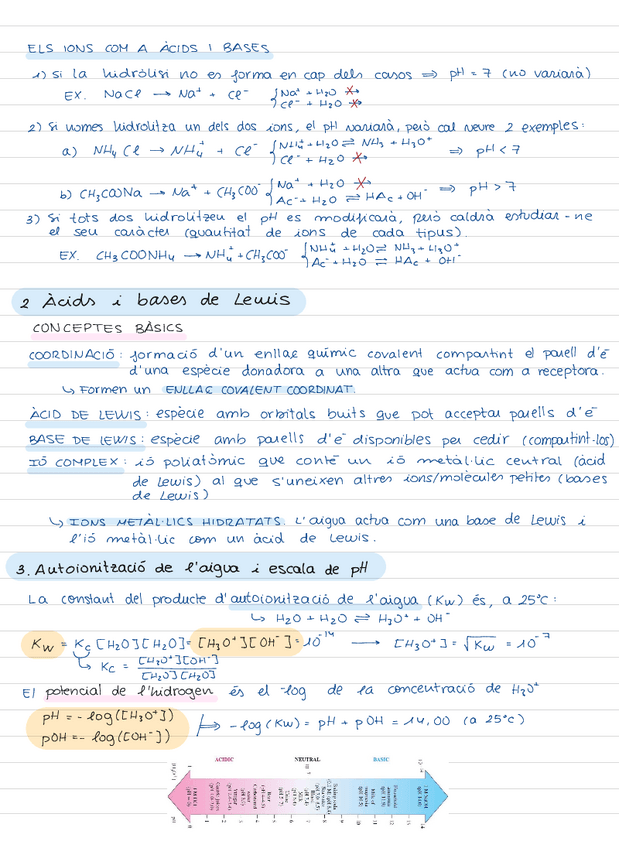 ELS IONS COM A ÀCIDS I BASES
1) Si la hidròlisi no es forma en cap dels casos ⇒ pH = 7 (no variarà)
EX. NaCl → Na⁺ + Cl⁻ { Na⁺ + H₂O ✗→
Cl⁻ + H₂O ✗→
2) Si només hidrolitza un dels dos ions, el pH variarà, però cal veure 2 exemples:
a) NH₄Cl → NH₄⁺ + Cl⁻ { NH₄⁺ + H₂O ⇌ NH₃ + H₃O⁺ ⇒ pH < 7
Cl⁻ + H₂O ✗→
b) CH₃COONa → Na⁺ + CH₃COO⁻ { Na⁺ + H₂O ✗→ ⇒ pH > 7
Ac⁻ + H₂O ⇌ HAc + OH⁻
3) Si tots dos hidrolitzen el pH es modificarà, però caldrà estudiar-ne
el seu caràcter (quantitat de ions de cada tipus).
EX. CH₃COONH₄ → NH₄⁺ + CH₃COO⁻ { NH₄⁺ + H₂O ⇌ NH₃ + H₃O⁺
Ac⁻ + H₂O ⇌ HAc + OH⁻
2 Àcids i bases de Lewis
CONCEPTES BÀSICS
COORDINACIÓ: formació d'un enllaç químic covalent compartint el parell d'e⁻
d'una espècie donadora a una altra que actua com a receptora.
↳ Formen un ENLLAÇ COVALENT COORDINAT.
ÀCID DE LEWIS: espècie amb orbitals buits que pot acceptar parells d'e⁻
BASE DE LEWIS: espècie amb parells d'e⁻ disponibles per cedir (compartint-los)
IÓ COMPLEX: ió poliatòmic que conté un ió metàl·lic central (àcid
de Lewis) al que s'uneixen altres ions/molècules petites (bases
de Lewis)
↳ IONS METÀL·LICS HIDRATATS. L'aigua actua com una base de Lewis i
l'ió metàl·lic com un àcid de Lewis.
3. Autoionització de l'aigua i escala de pH
La constant del producte d'autoionització de l'aigua (Kw) és, a 25°C:
↳ H₂O + H₂O ⇌ H₃O⁺ + OH⁻
Kw = Kc [H₂O][H₂O] = [H₃O⁺][OH⁻] = 10⁻¹⁴ → [H₃O⁺] = √Kw = 10⁻⁷
↳ Kc = [H₃O⁺][OH⁻] / [H₂O][H₂O]
El potencial de l'hidrogen és el -log de la concentració de H₃O⁺
pH = -log([H₃O⁺])
pOH = -log([OH⁻]) ↦ -log(Kw) = pH + pOH = 14,00 (a 25°C)
ACIDIC NEUTRAL BASIC